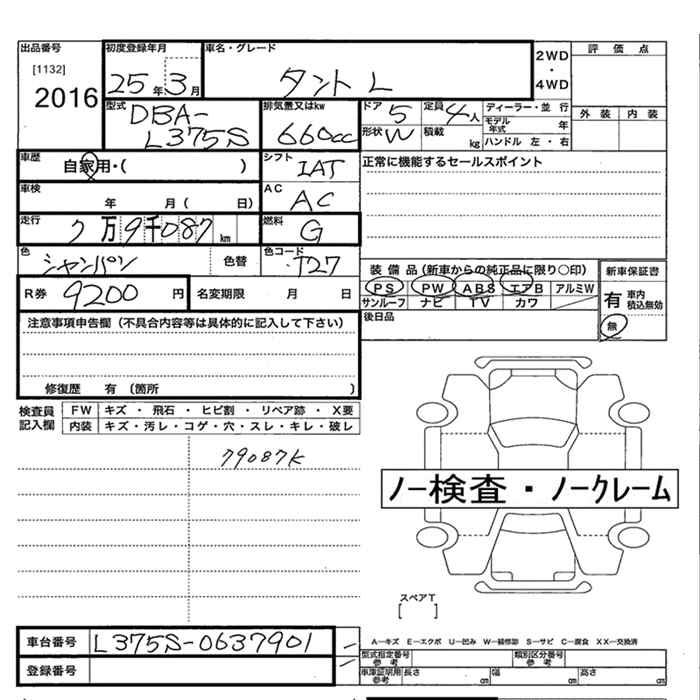 出品番号
[1132]
2016
初度登録年月
25年3月
車名・グレード
タント L
2WD
・
4WD
評価点
外装 内装
型式
DBA-
L375S
排気量又はkw
660cc
ドア 5
定員 4人
形状 W
積載 kg
ディーラー・並行
モデル年式 年
ハンドル 左・右
車歴
自家用・( )
シフト
IAT
正常に機能するセールスポイント
車検
年 月( 日)
AC
AC
走行
7万9千087km
燃料
G
色
シャンパン
色替
色コード
T27
装備品(新車からの純正品に限り○印)
PS PW ABS エアB アルミW
サンルーフ ナビ TV カワ
新車保証書
有 車内積込無効
無
R券 9200円
名変期限 月 日
後日品
注意事項申告欄(不具合内容等は具体的に記入して下さい)
修復歴 有(箇所 )
検査員記入欄
FW キズ・飛石・ヒビ割・リペア跡・X要
内装 キズ・汚レ・コゲ・穴・スレ・キレ・破レ
79087K
ノー検査・ノークレーム
スペアT
[ ]
車台番号 L375S-0637901
登録番号
A―キズ E―エクボ U―凹み W―補修跡 S―サビ C―腐食 XX―交換済
型式指定番号 参考
類別区分番号 参考
車庫証明用 参考
長さ cm 幅 cm 高さ cm